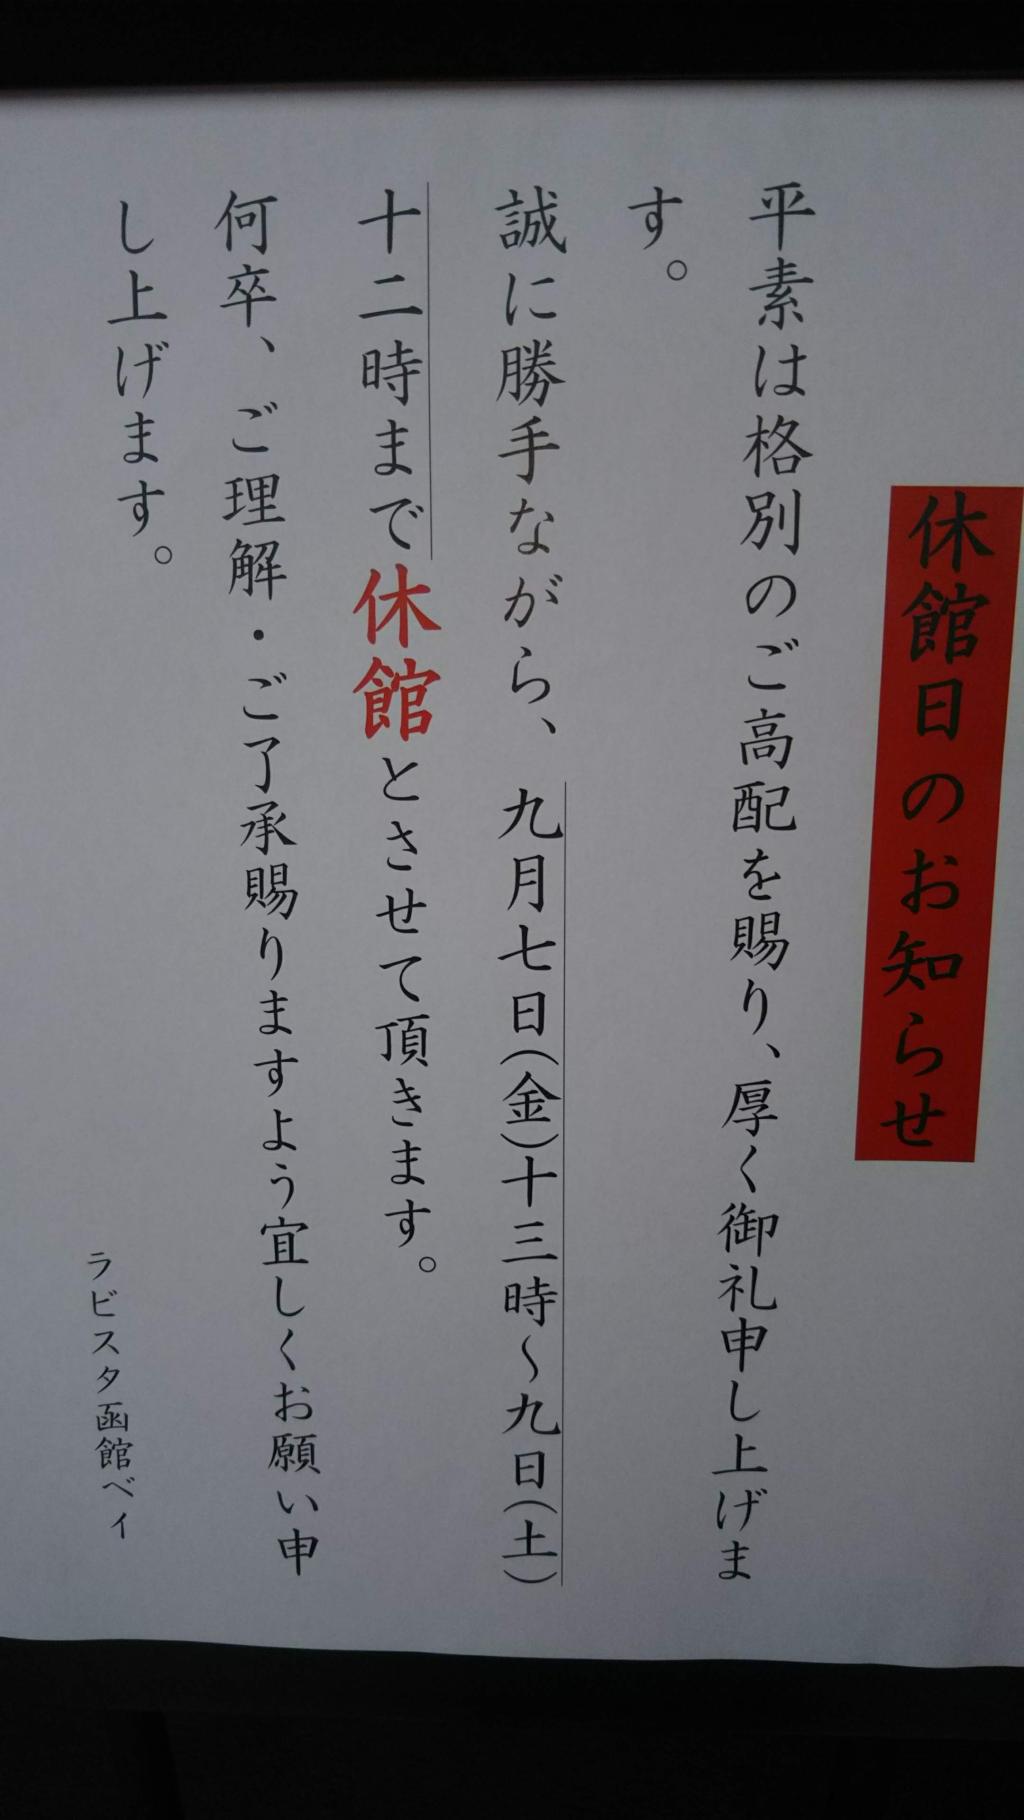 休館日のお知らせ
平素は格別のご高配を賜り、厚く御礼申し上げま
す。
誠に勝手ながら、九月七日(金)十三時～九日(土)
十二時まで休館とさせて頂きます。
何卒、ご理解・ご了承賜りますよう宜しくお願い申
し上げます。
ラビスタ函館ベイ